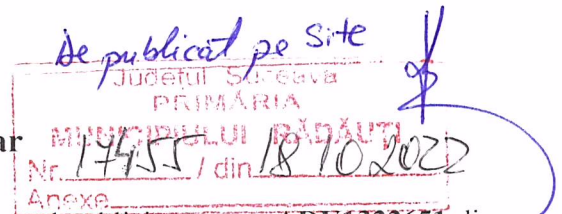 De publicat pe Site
Județul Suceava
PRIMĂRIA
MUNICIPIULUI RĂDĂUȚI
ar
Nr. 17455 / din 18 10 2022
Anexe